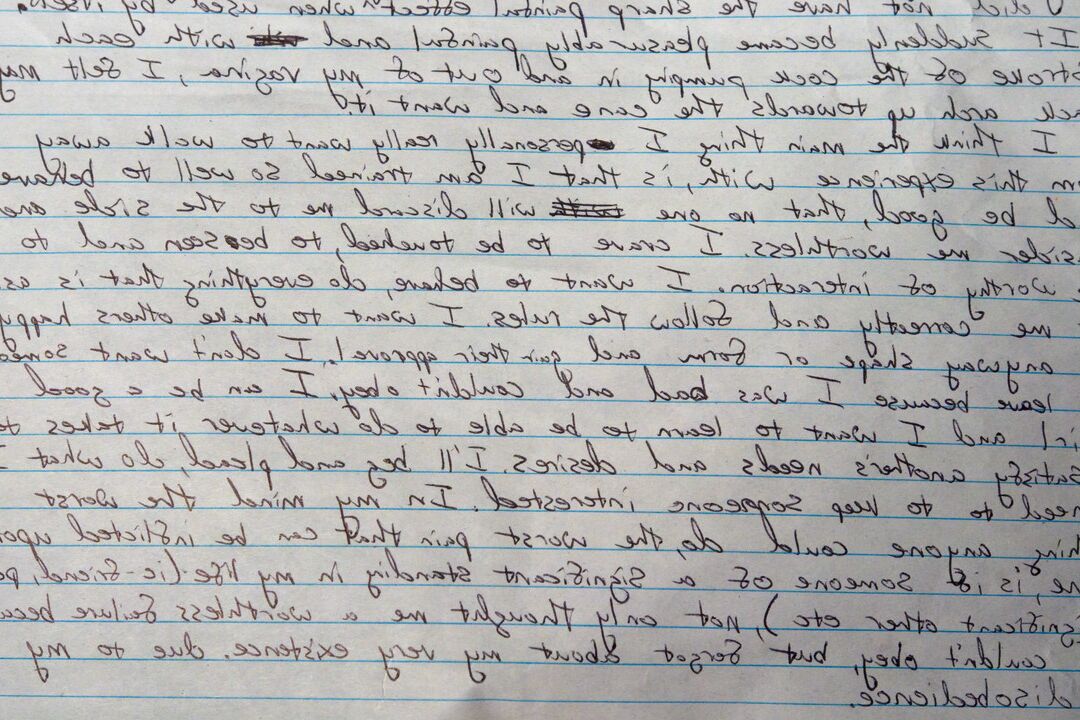 did not have the sharp painful effect when used by itself.
It suddenly became pleasurably painful and with each
stroke of the cock pumping in and out of my vagina, I felt my
arch up towards the cane and want it!
I think the main thing I personally really want to walk away
this experience with, is that I am trained so well to behave
be good, that no one will discard me to the side and
me worthless. I crave to be touched, to be seen and to
worthy of interaction. I want to behave, do everything that is
me correctly and follow the rules. I want to make others happy
anyway shape or form and gain their approval. I don't want
leave because I was bad and couldn't obey. I can be a good
and I want to learn to be able to do whatever it takes to
satisfy another's needs and desires. I'll beg and plead, do what I
need to to keep someone interested. In my mind the worst
thing anyone could do, the worst pain that can be inflicted upon
me, is if someone of a significant standing in my life (ie-friend,
significant other etc), not only thought me a worthless failure
couldn't obey, but forgot about my very existence. due to my
disobedience.